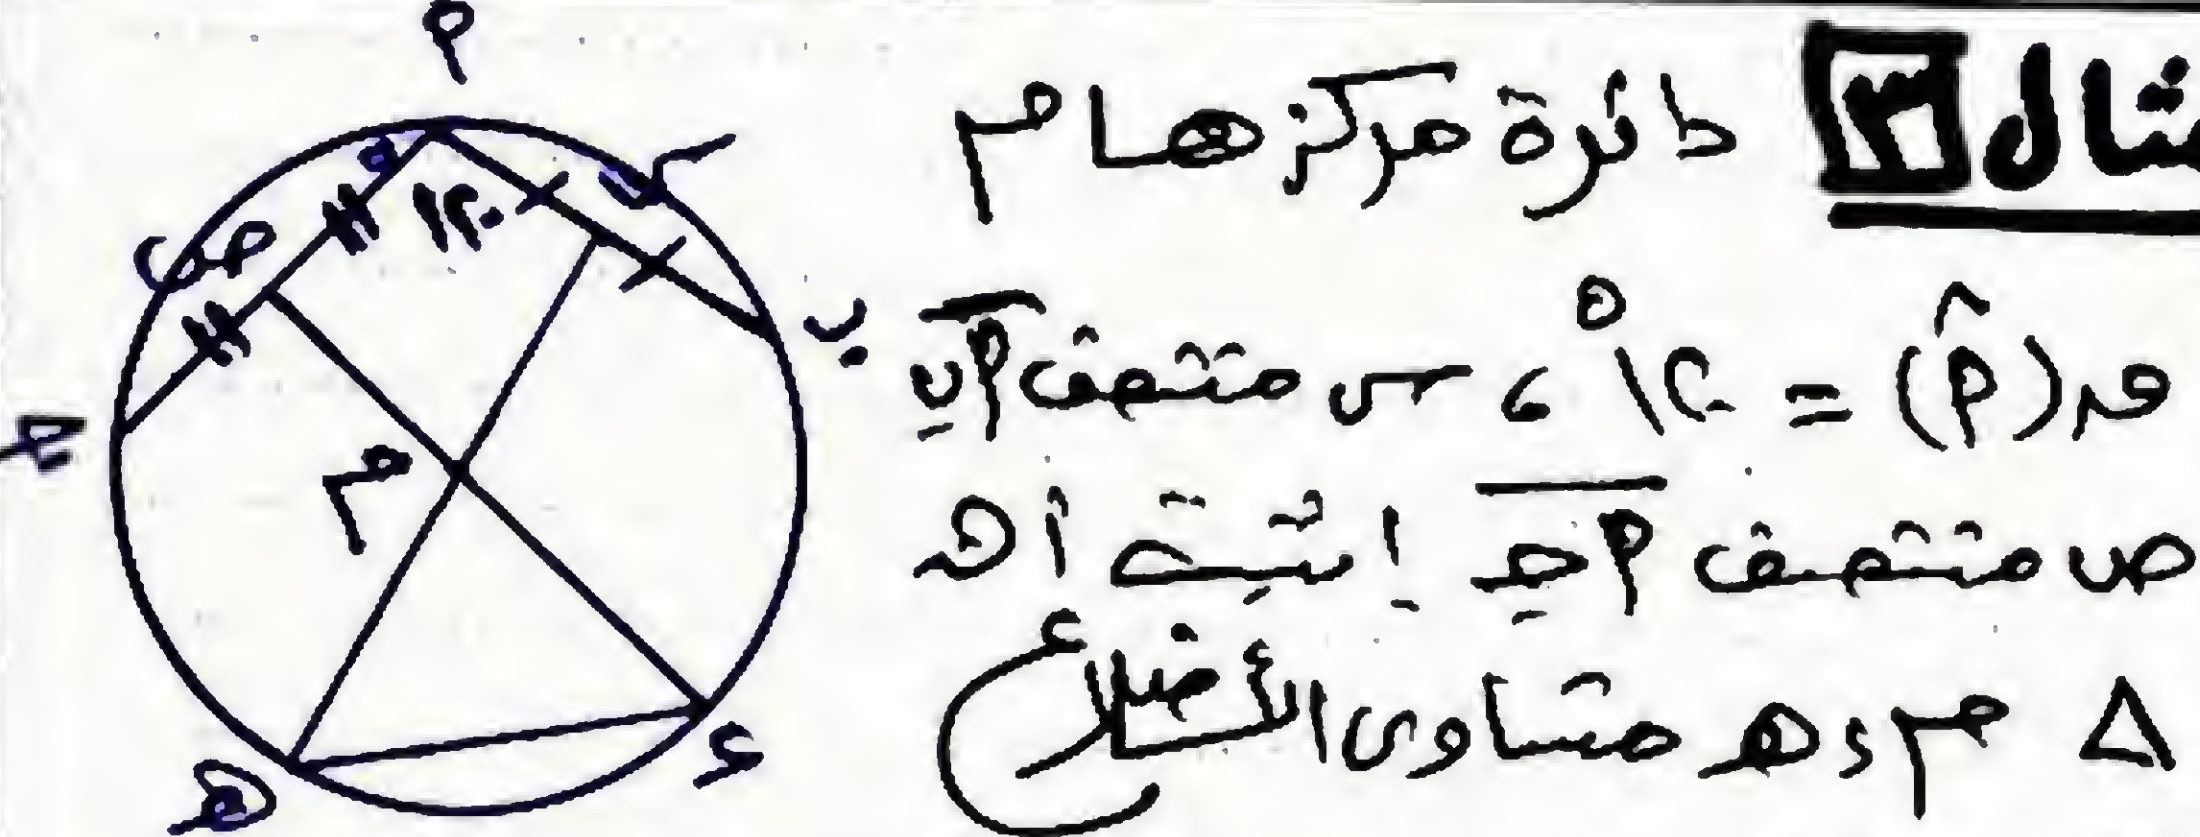 مثال ٣ دائرة مركزها م
ق(أ̂) = ١٢٠° ، س منتصف أب
ص منتصف أج إثبت أن
Δ م ء هـ متساوى الأضلاع
أ
س
ص
١٢٠
ب
ج
م
ء
هـ